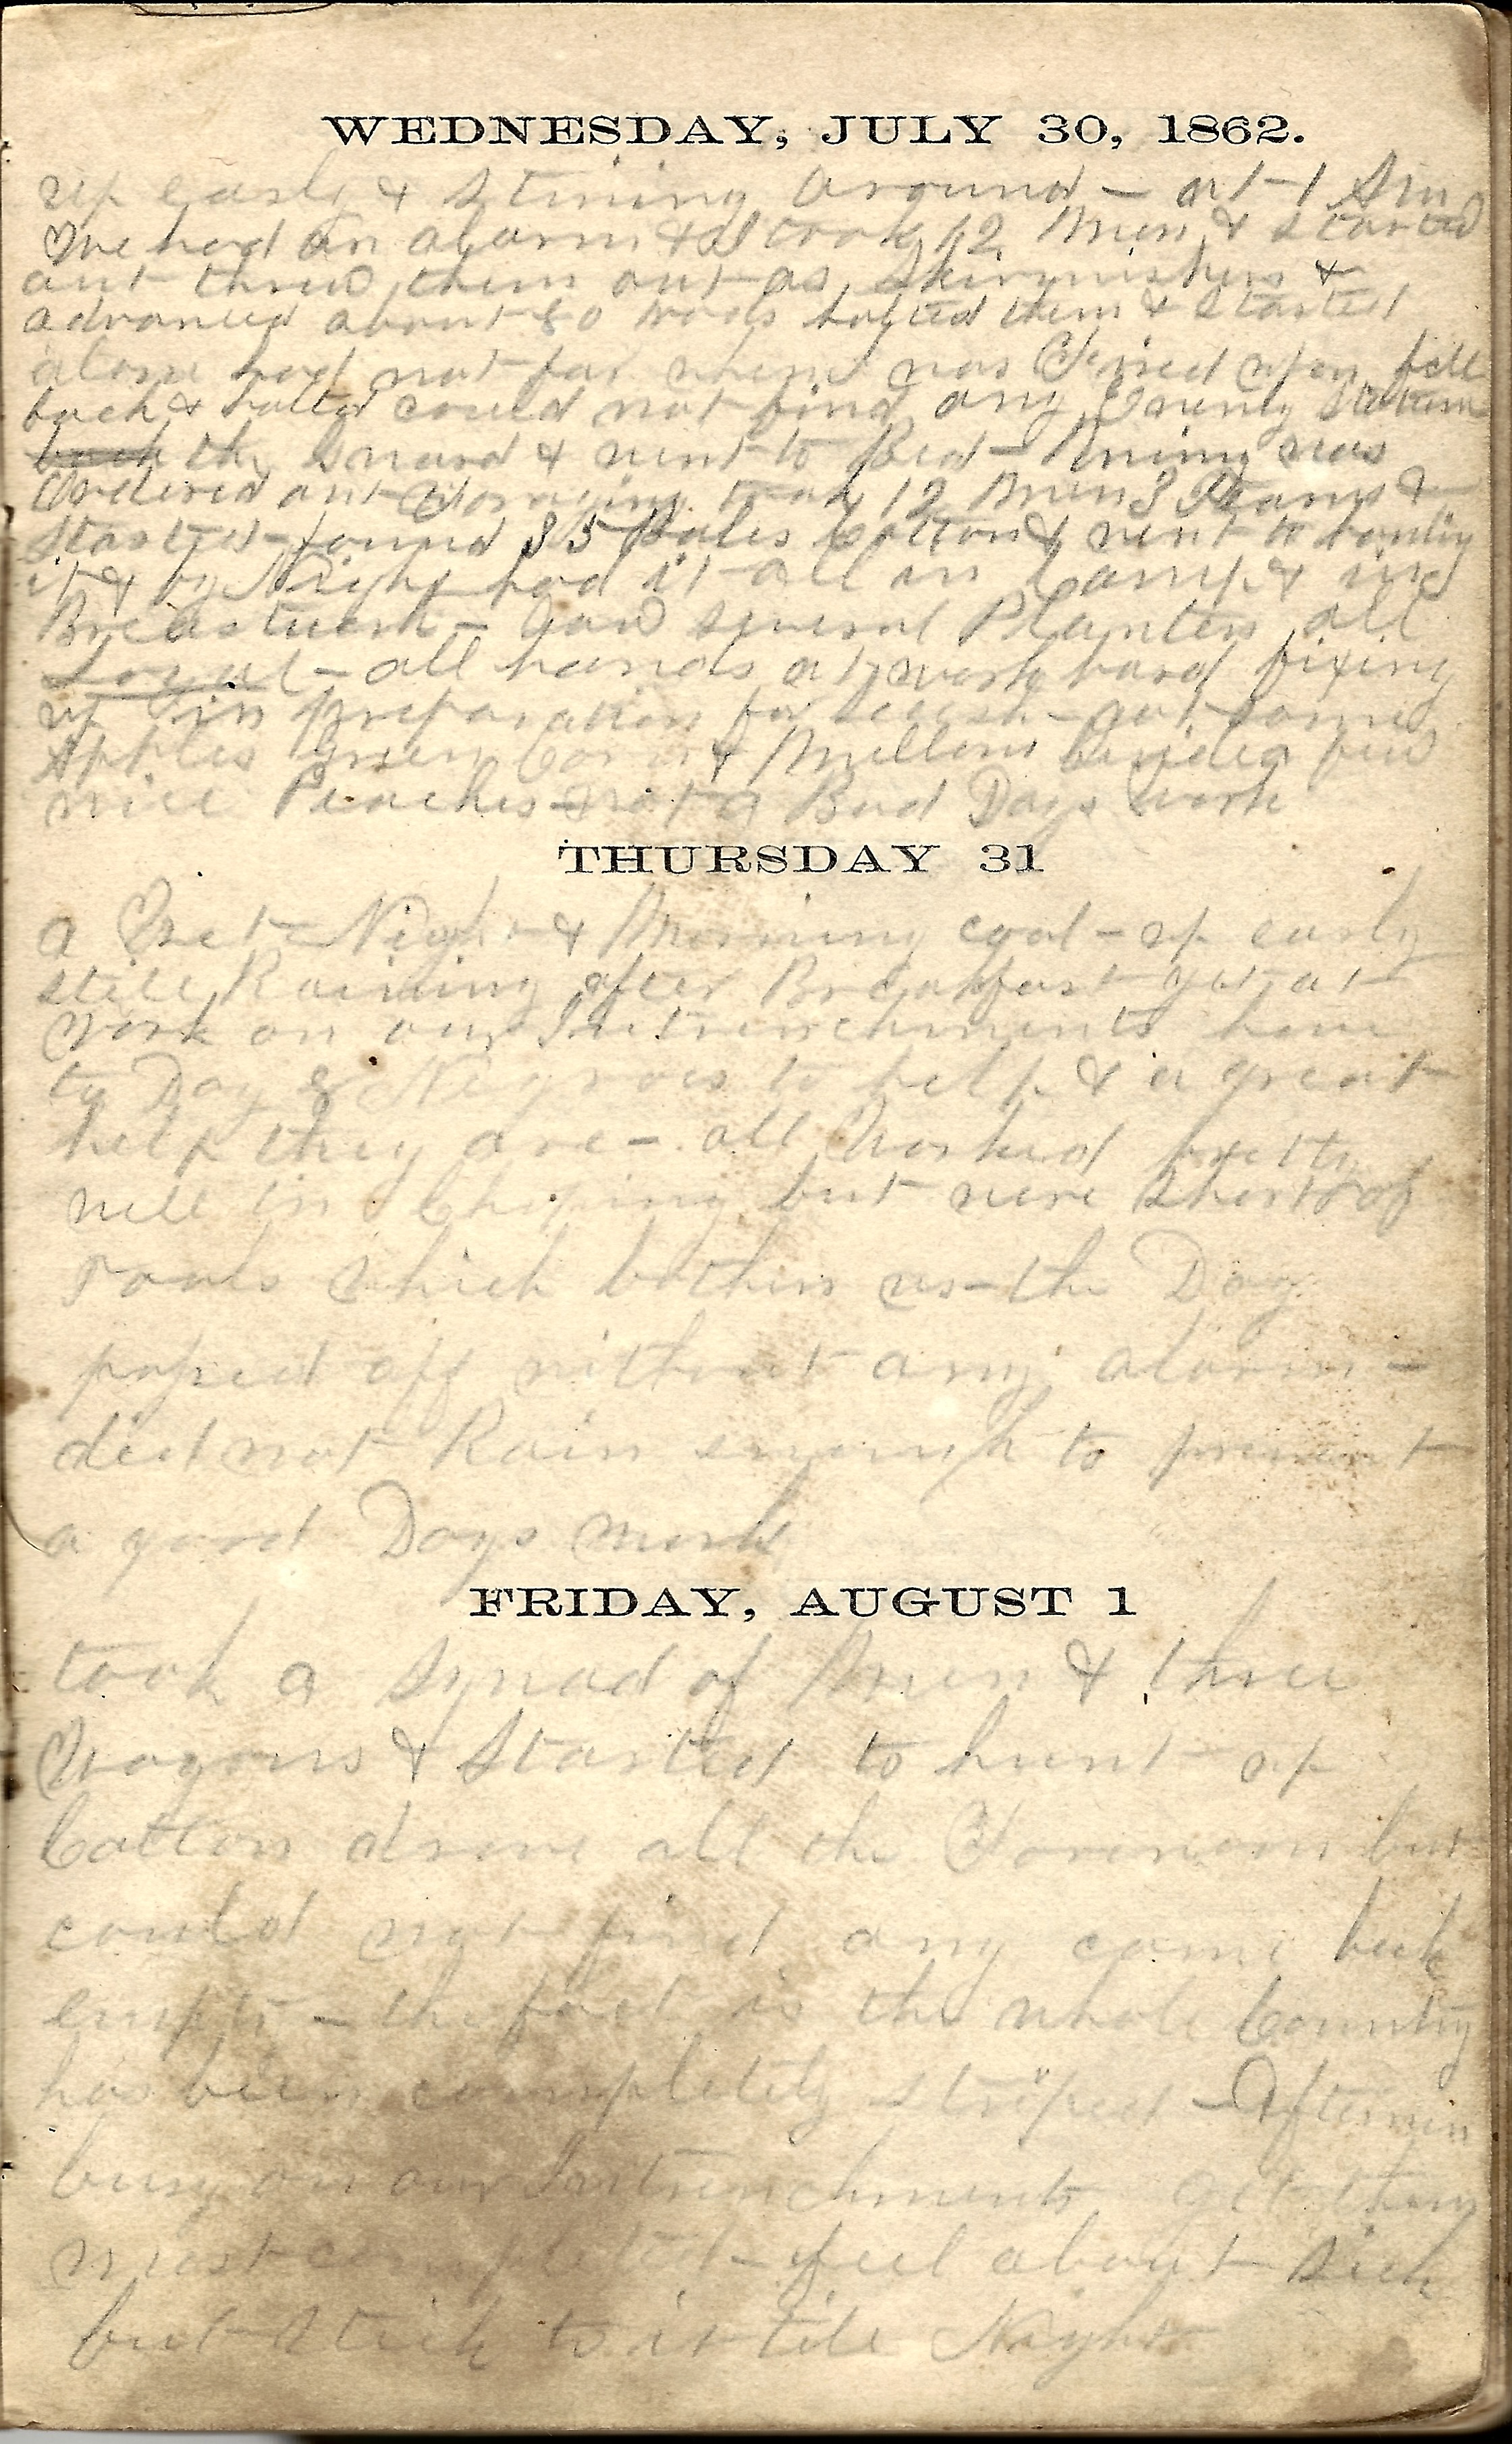 WEDNESDAY, JULY 30, 1862.
up early & stirring around - at 1 Am
We had an alarm & I took 12 Men & started
out threw them out as Skirmishers &
advanced about 80 rods halted them & started
alone had not far when was Fired upon fell
back & could not find any Enemy
back the Guard & went to Bed - Morning was
Ordered out Foraging took 12 Men 3 Teams &
Started - found 35 Bales Cotton & went to
it & by Night had it all in Camp &
Breastwork - Saw several Planters all
Loyal - all hands at work hard fixing
up in preparation for secesh - got some
Apples Green Corn & Mellons Besides few
nice Peaches - not a Bad Days work
THURSDAY 31
a Wet Night & Morning cool - up early
still Raining after Breakfast got at
work on our Intrenchments have
to Day 8 Negroes to help & a great
help they are - all Worked pretty
well in Choping but were short of
rools which bothers us - the Day
passed off without any alarm -
did not Rain enough to prevent
a good Days work
FRIDAY, AUGUST 1
took a Squad of Men & three
Wagons & Started to hunt up
Cotton drove all the Forenoon but
could not find any came back
empty - the fact is the whole Country
has been completely striped - Afternoon
busy on our Intrenchments get them
most completed - feel about sick
but stick to it till Night